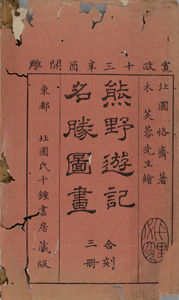 寛政十三辛酉開雕
北圃恪齋著
木芙蓉先生繪
熊野遊記
名勝圖畫
合刻
三冊
東都 北圃氏千鍾書房藏版